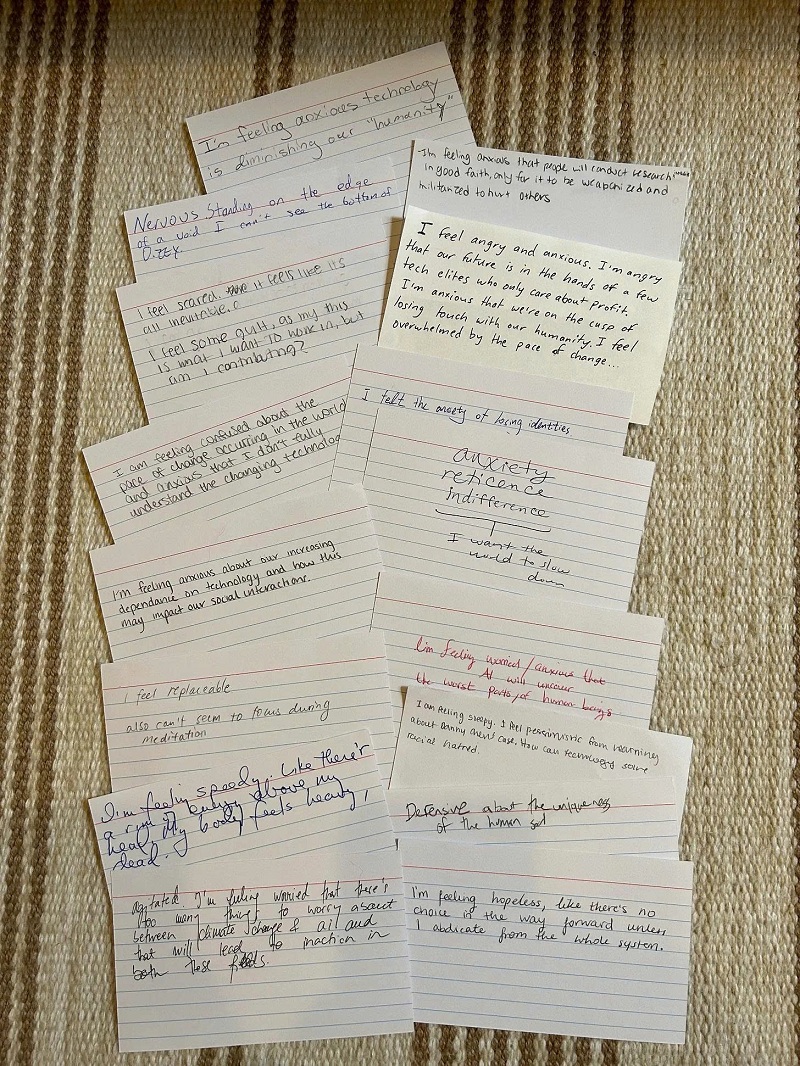 I'm feeling anxious technology
is diminishing our "humanity"
Nervous Standing on the edge
of a void I can't see the bottom of
Dizzy.
I feel scared. it feels like its
all inevitable.
I feel some guilt, as my this
is what I want to work in, but
am I contributing?
I am feeling confused about the
pace of change occurring in the world
and anxious that I don't fully
understand the changing technolog
I'm feeling anxious about our increasing
dependance on technology and how this
may impact our social interactions.
I feel replaceable
also can't seem to focus during
meditation
I'm feeling speedy. Like there's
a run of energy above my
head. My body feels heavy,
dead.
agitated. I'm feeling worried that there's
too many things to worry about
between climate change & ai and
that will lead to inaction in
both these fields.
I'm feeling anxious that people will conduct research
in good faith, only for it to be weaponized and
militarized to hurt others
I feel angry and anxious. I'm angry
that our future is in the hands of a few
tech elites who only care about profit.
I'm anxious that we're on the cusp of
losing touch with our humanity. I feel
overwhelmed by the pace of change...
I felt the anxiety of losing identities
anxiety
reticence
indifference
I want the
world to slow
down
I'm feeling worried/anxious that
AI will uncover
the worst parts of human beings
I am feeling sleepy. I feel pessimistic from learning
about Danny Chen's case. How can technology solve
racial hatred.
Defensive about the uniqueness
of the human
I'm feeling hopeless, like there's no
choice in the way forward unless
I abdicate from the whole system.